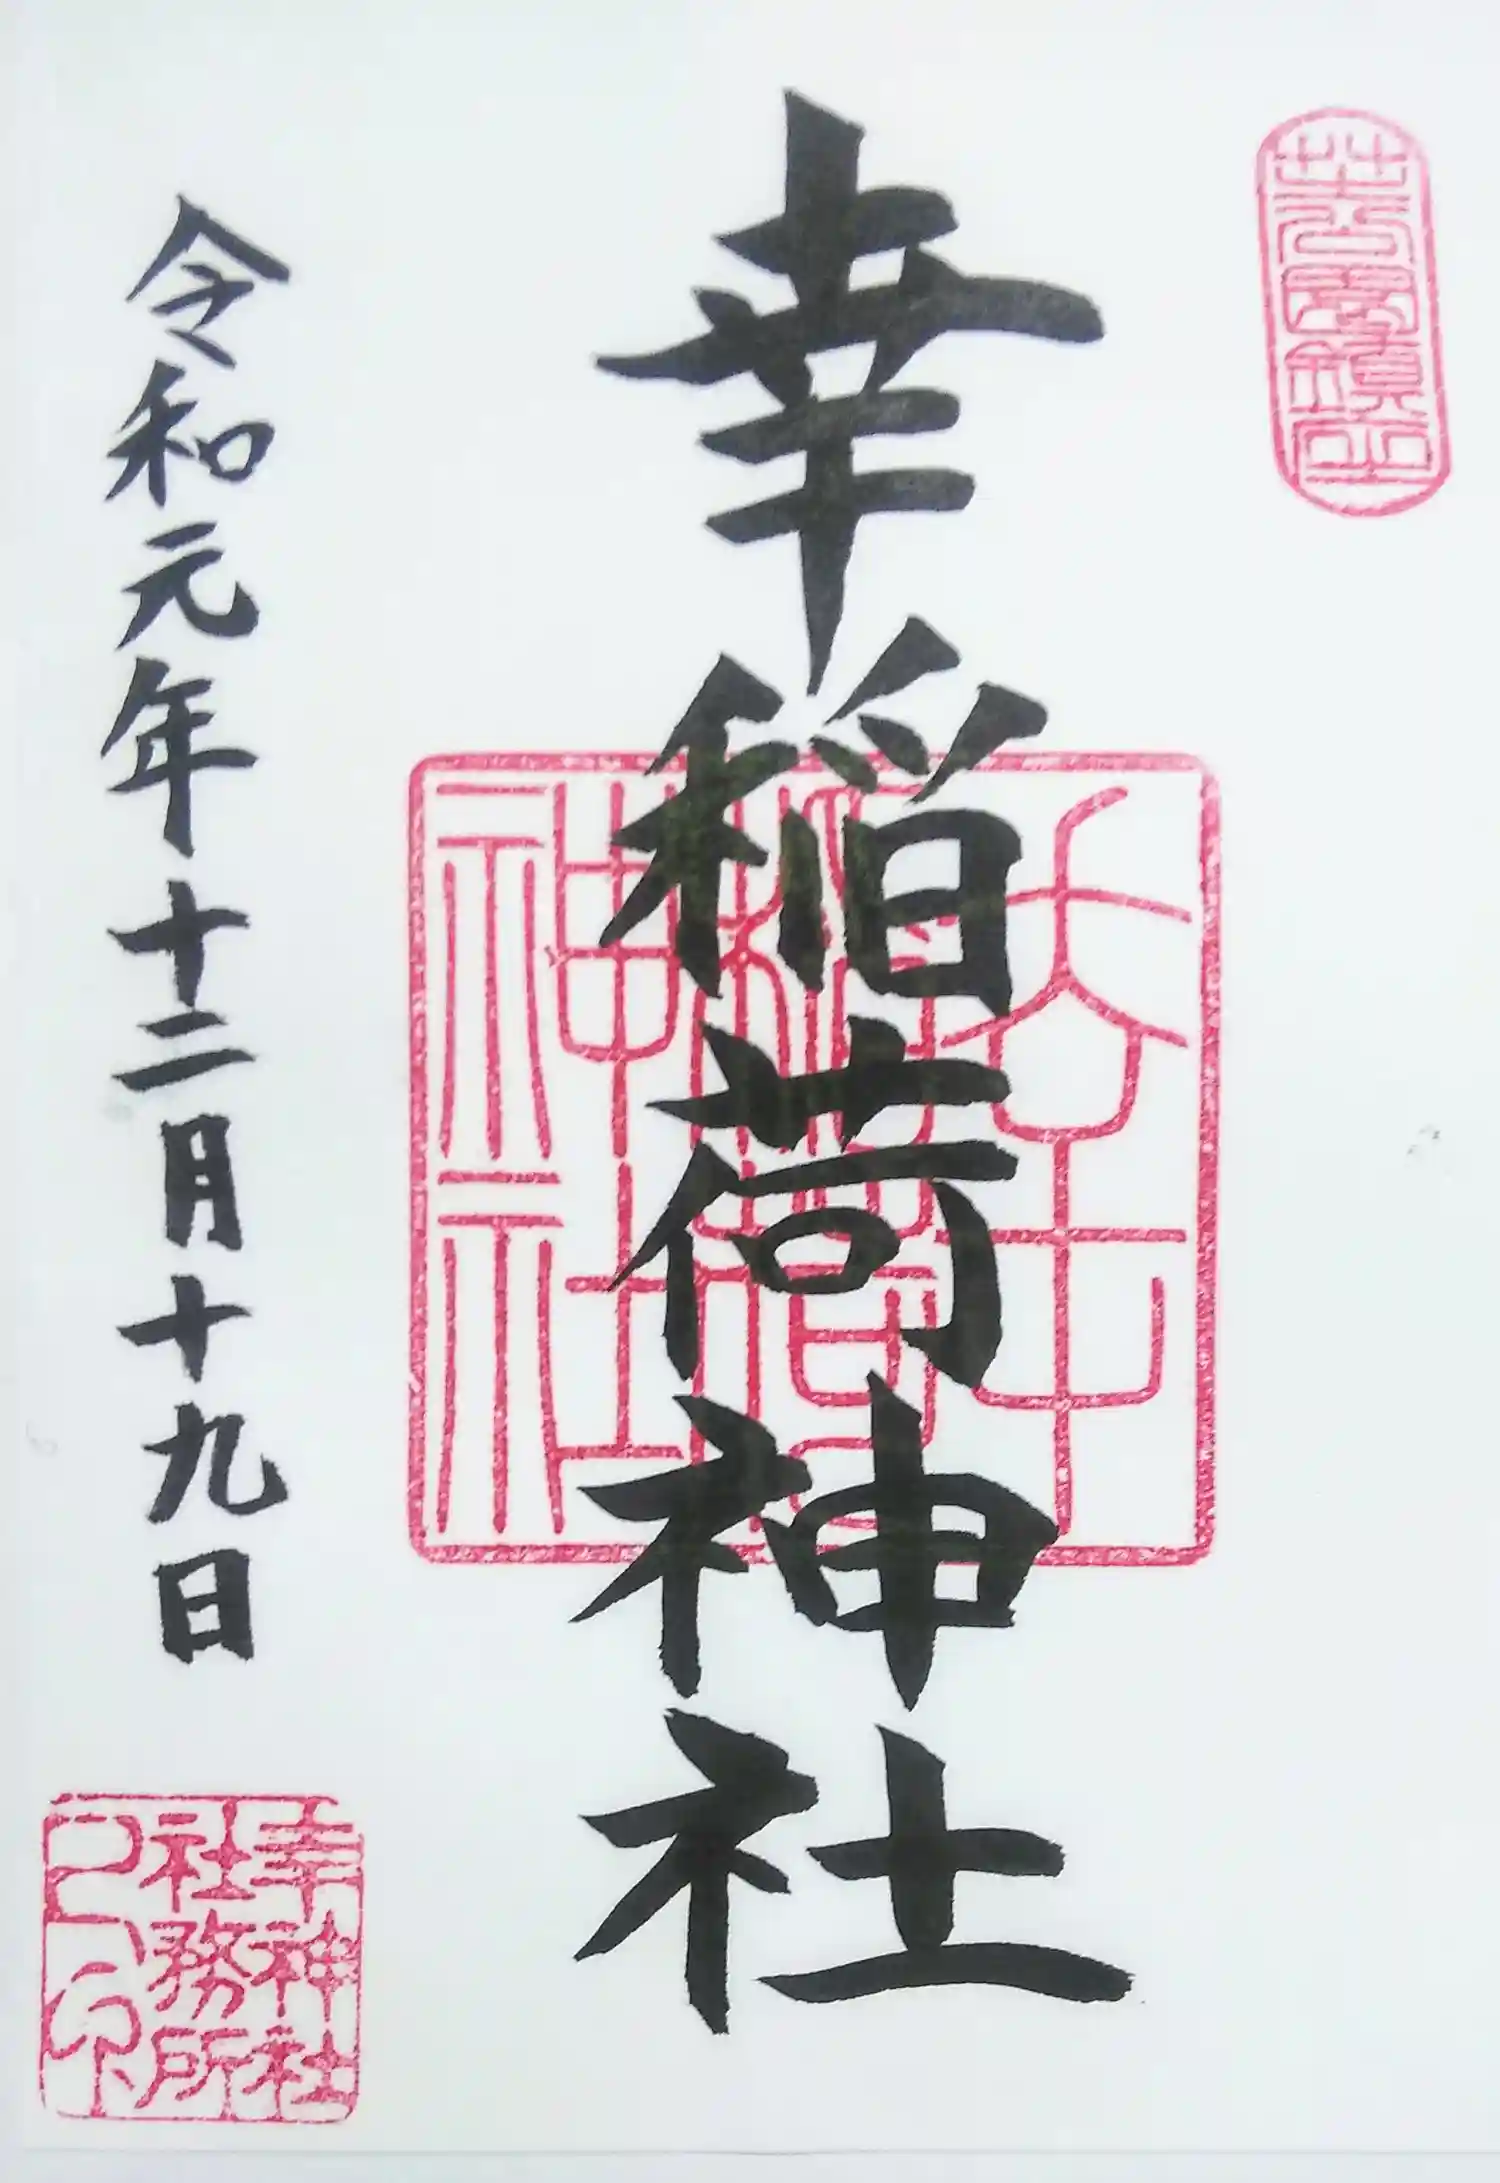 芝公園鎮座
幸稲荷神社
幸稲荷神社
令和元年十二月十九日
幸神社
社務所
之印